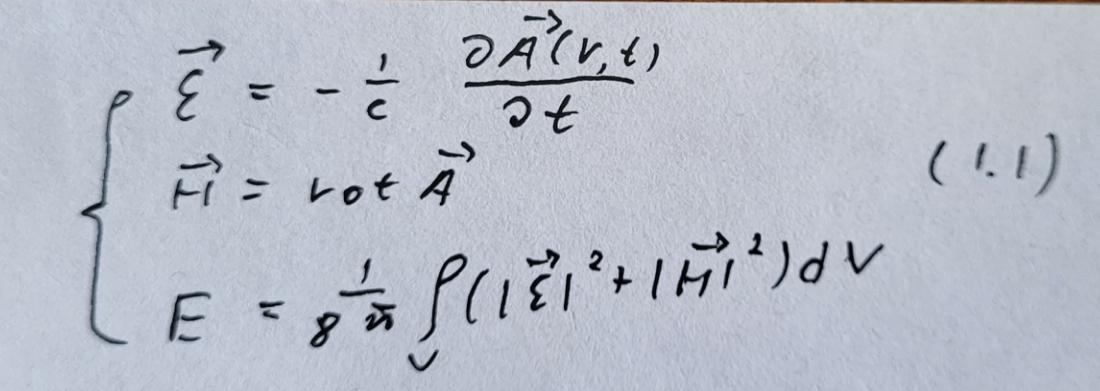 \vec{\mathcal{E}} = - \frac{1}{c} \frac{\partial \vec{A}(r,t)}{\partial t}
\vec{H} = rot \vec{A} (1.1)
E = \frac{1}{8\pi} \int_V (|\vec{\mathcal{E}}|^2 + |\vec{H}|^2) dV